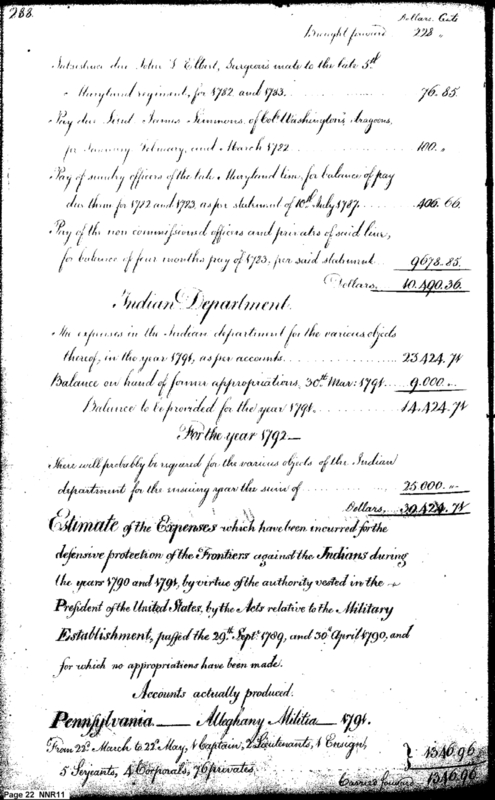 288.
Dollars. Cents
Brought forward 228 "
Subsistence due John S Elbert, Surgeon's mate to the late 3rd
Maryland regiment, for 1782 and 1783. 76.85.
Pay due Lieut James Simmons, of Colo Washington's dragoons,
for January February and March 1782 100. "
Pay of sundry officers of the late Maryland line, for balance of pay
due them for 1782 and 1783, as per statement of 10th July 1787. 406.66.
Pay of the non commissioned officers and privates of said line,
for balance of four months pay of 1783, per said statement 9678.85.
Dollars, 10.490.36.
Indian Department.
The expenses in the Indian department for the various objects
thereof, in the year 1791, as per accounts. 23.424.74
Balance on hand of former appropriations, 30th Mar: 1791. 9.000.
Balance to be provided for the year 1791. 14.424.74
For the year 1792—
There will probably be required for the various objects of the Indian
department for the ensuing year the sum of 25.000."
Dollars, 39.424.74
Estimate of the Expenses which have been incurred for the
defensive protection of the Frontiers against the Indians during
the years 1790 and 1791, by virtue of the authority vested in the
President of the United States, by the Acts relative to the Military
Establishment, passed the 29th Septr 1789, and 30th April 1790, and
for which no appropriations have been made.
Accounts actually produced.
Pennsylvania — Alleghany Militia — 1791.
From 22d March to 22d May, 1 Captain, 2 Lieutenants, 1 Ensign,
5 Serjeants, 4 Corporals, 76 privates. } 1346.96
Carried forward 1346.96
Page 22 NNR11